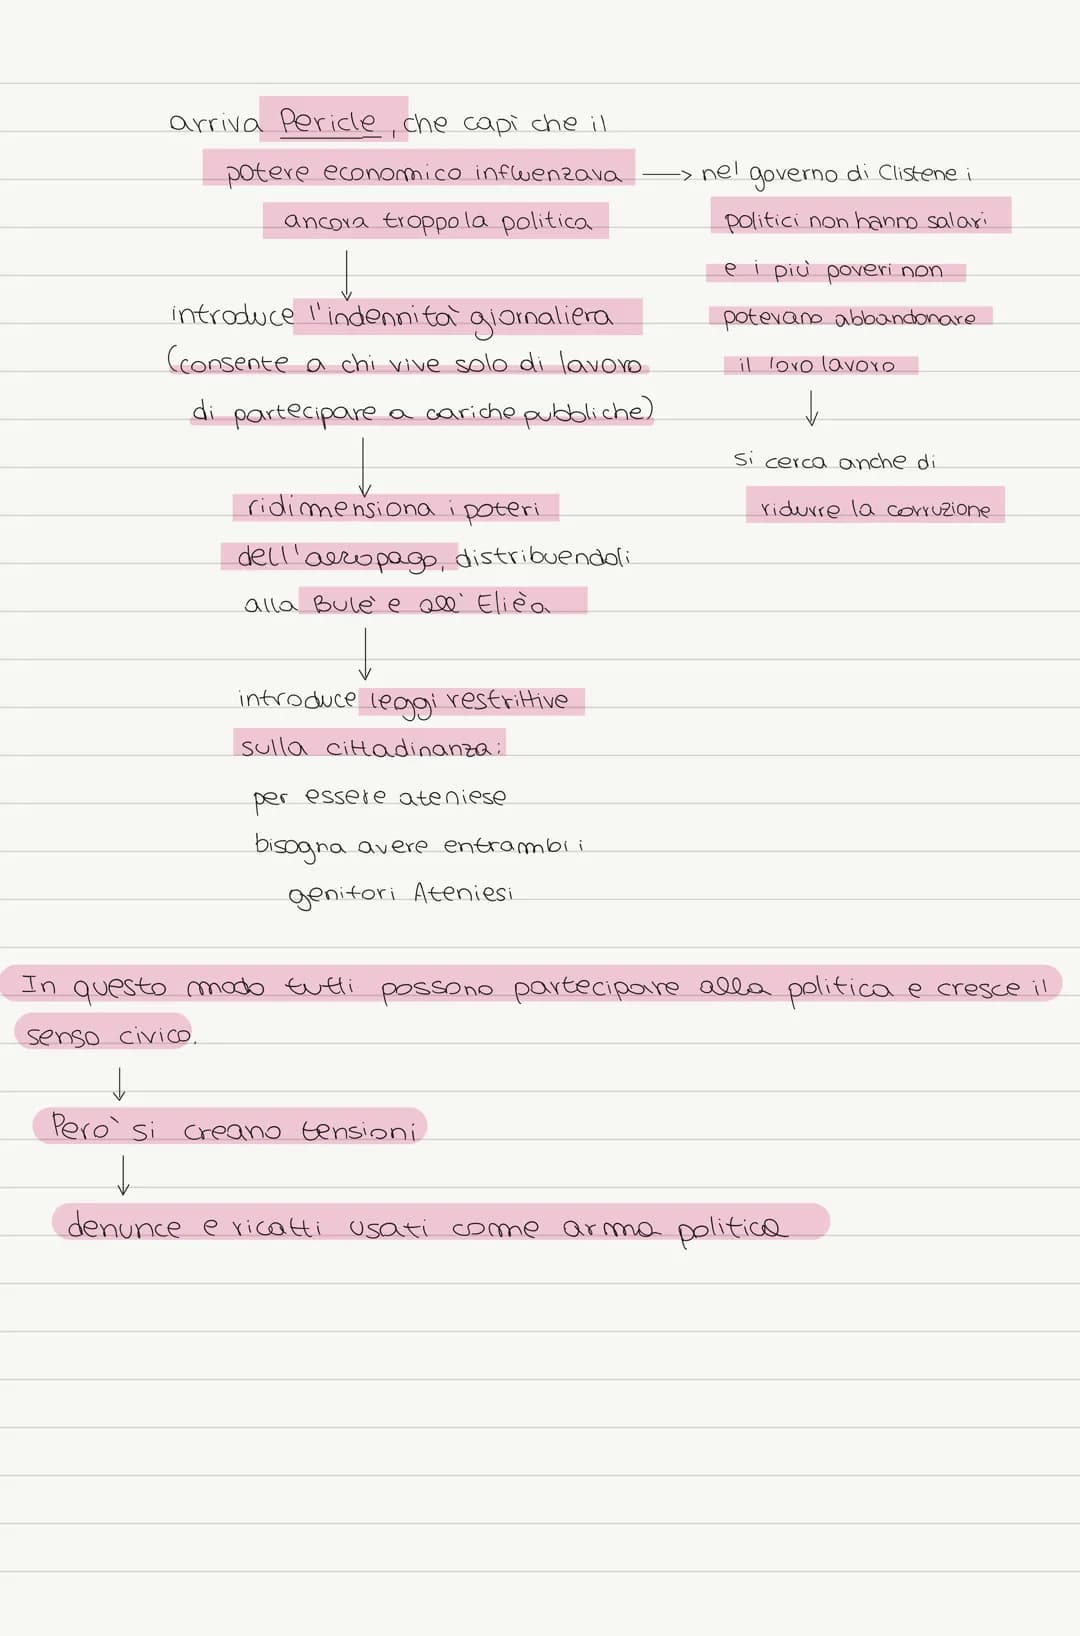 arriva Pericle, che capì che il
potere economico influenzava → nel governo di Clistene i
ancora troppo la politica
politici non hanno salari
e i più poveri non
potevano abbandonare
il loro lavoro
↓
si cerca anche di
ridurre la corruzione
↓
introduce l'indennità giornaliera
(consente a chi vive solo di lavoro
di partecipare a cariche pubbliche)
↓
ridimensiona i poteri
dell'aeropago, distribuendoli
alla Bulè e all' Elièa
↓
introduce leggi restrittive
sulla cittadinanza:
per essere ateniese
bisogna avere entrambi i
genitori Ateniesi
In questo modo tutti possono partecipare alla politica e cresce il
senso civico.
↓
Però si creano tensioni
↓
denunce e ricatti usati come arma politica